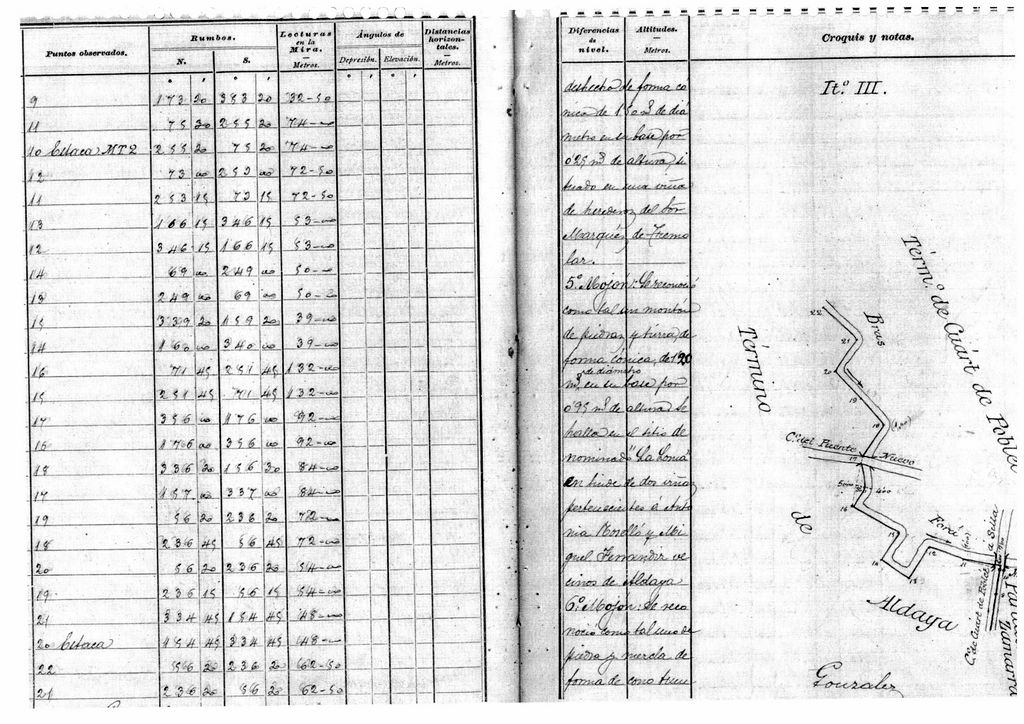 Puntos observados.
Rumbos.
N. S.
Lecturas en la Mira.
Metros.
Ángulos de
Depresión. Elevación.
Distancias horizontales.
Metros.
9 173 20 353 20 32-50
11 75 20 255 20 74-00
10 Estaca MT2 255 20 75 20 74-00
12 73 00 253 00 72-50
11 253 15 73 15 72-50
13 166 15 346 15 53-00
12 346 15 166 15 53-00
14 69 00 249 00 50-00
13 249 00 69 00 50-00
15 339 20 159 20 39-00
14 160 00 340 00 39-00
16 71 45 251 45 132-00
15 251 45 71 45 132-00
17 356 00 176 00 92-00
16 176 00 356 00 92-00
18 336 30 156 30 84-00
17 157 00 337 00 84-00
19 56 20 236 20 72-00
18 236 45 56 45 72-00
20 56 20 236 20 54-00
19 236 15 56 15 54-00
21 334 45 154 45 48-00
20 Estaca 154 45 334 45 48-00
22 56 20 236 20 62-50
21 236 20 56 20 62-50
Diferencias de nivel.
Altitudes.
Metros.
deshecho de forma co
nica de 1 50 m.s de diá
metro en su base por
0'25 m.s de altura si
tuado en una viña
de herederos del Sor
Marqués de Tremo
lar.
5.º Mojon: Se reconoció
como tal un montón
de piedras y tierra, de
forma cónica, de 1'20
de diámetro
m.s en su base por
0'95 m.s de altura se
halla en el sitio de
nominado "La Lonia"
en linde de dos viñas
pertenecientes á Anto
nia Rosolló y Mi
guel Ferrandir ve
cinos de Aldaya
6.º Mojon: Se reco
noció como tal uno de
piedra y mezcla de
forma de cono trun
Croquis y notas.
It.º III.
Térm.º de Cuárt de Poblet
Término
de
Aldaya
Bras
22
21
20
19
18
C.º del Puente Nuevo
17
16
15
14
13
12
11
Forá
C.º de Cuárt de Poblet á Silla
Gonzalez